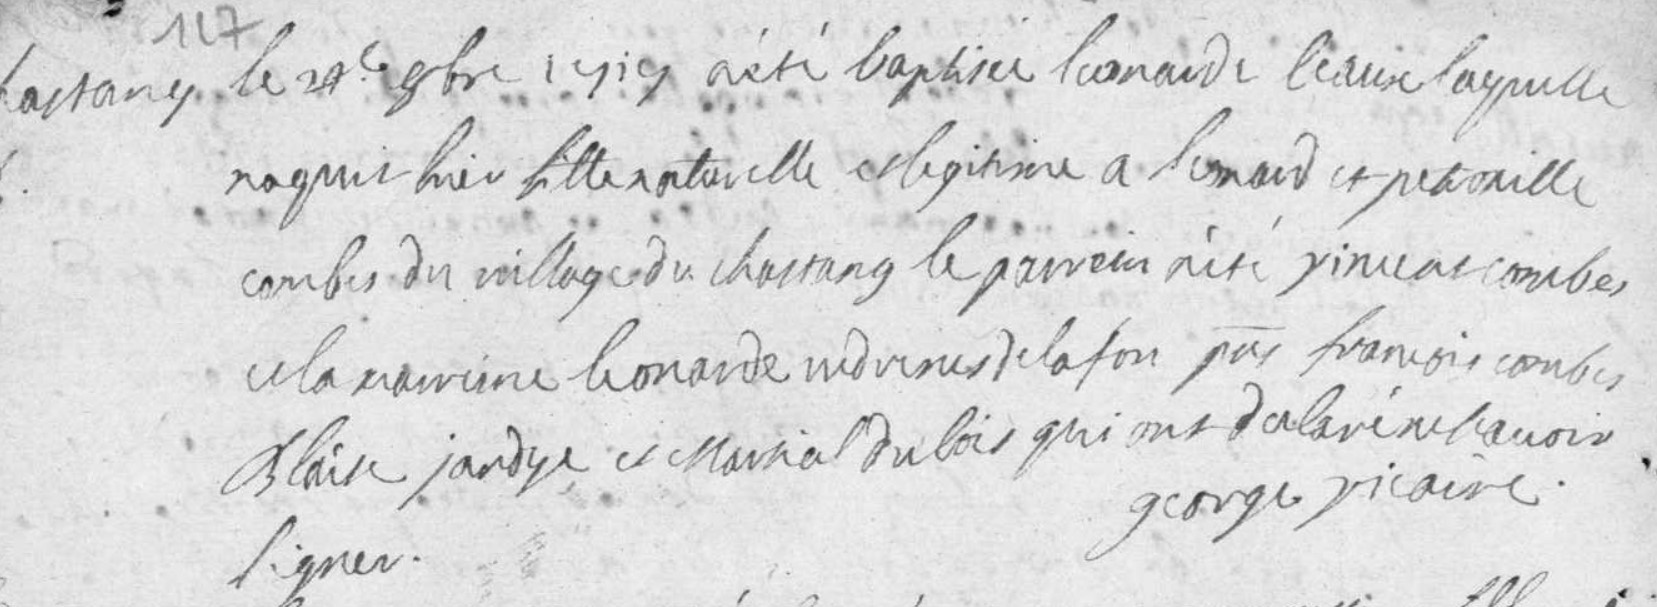 117
le 8bre a été baptisée leonarde laquelle
naquit hier fille naturelle et legitime a leonard et petronille
combes du village du chastang le parrein a été vincent combes
et la marreine leonarde vedrenes de lafon pnts francois combes
Blaise jardye et Martial dubois qui ont declaré ne scavoir
george vicaire.
signer.